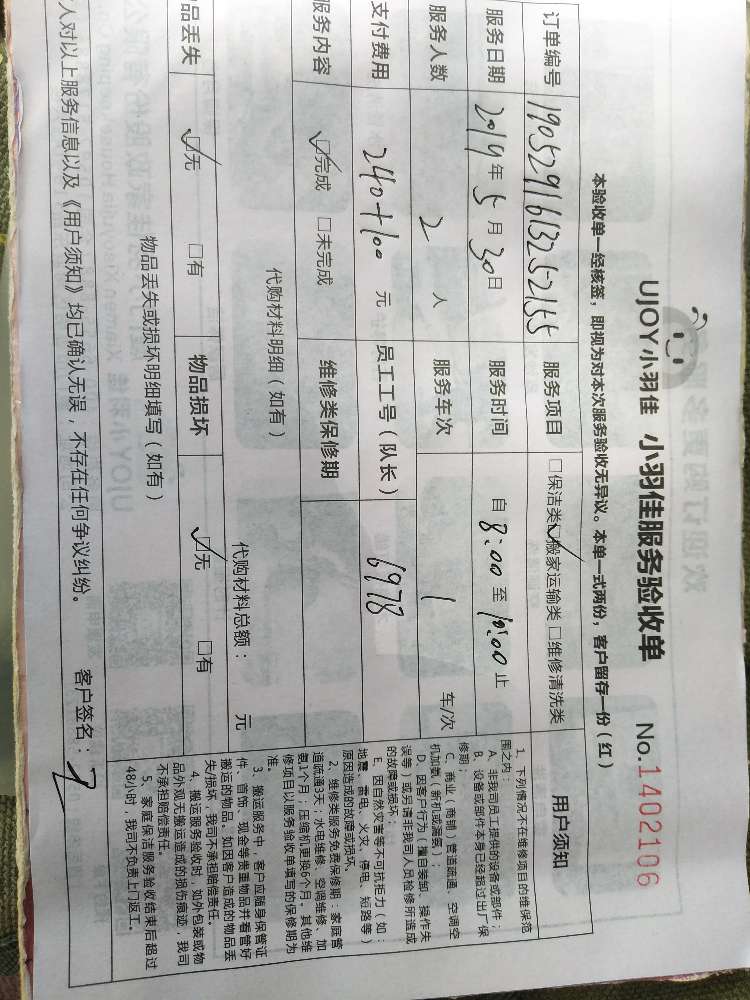 UJOY小羽佳 小羽佳服务验收单 No.1402106
本验收单一经核签，即视为对本次服务验收无异议。本单一式两份，客户留存一份（红）
订单编号 1905291613252155 服务项目 □保洁类☑搬家运输类□维修清洗类
服务日期 2019年5月30日 服务时间 自8:00至10:00止
服务人数 2 人 服务车次 1 车/次
支付费用 240+100 元 员工工号（队长） 6978
服务内容 ☑完成 □未完成 维修类保修期
代购材料明细（如有）
代购材料总额： 元
品丢失 ☑无 □有 物品损坏 ☑无 □有
物品丢失或损坏明细填写（如有）
人对以上服务信息以及《用户须知》均已确认无误，不存在任何争议纠纷。 客户签名：
用户须知
1、下列情况不在维修项目的维保范
围之内：
A、非我司员工提供的设备或部件；
B、设备或部件本身已经超过出厂保
修期；
C、商业（商铺）管道疏通、空调空
机加氨（新机或漏氨）；
D、因客户行为（擅自装卸、操作失
误等）或另请非我司人员检修所造成
的故障或损坏；
E、因自然灾害等不可抗拒力（如：
地震、雷电、火灾、停电、短路等）
原因造成的故障或损坏。
2、维修类服务免费保修期：家庭管
道疏通3天；水电维修、空调维修、加
氨1个月；压缩机更换6个月，其他维
修项目以服务验收单填写的保修期为
准。
3、搬运服务中，客户应随身保管证
件、首饰、现金等贵重物品并看管好
搬运的物品。如因客户造成的物品丢
失/损坏，我司不承担赔偿责任。
4、搬运服务验收时，如外包装或物
品外观无搬运造成的损伤痕迹，我司
不承担赔偿责任。
5、家庭保洁服务验收结束后超过
48小时，我司不负责上门返工。